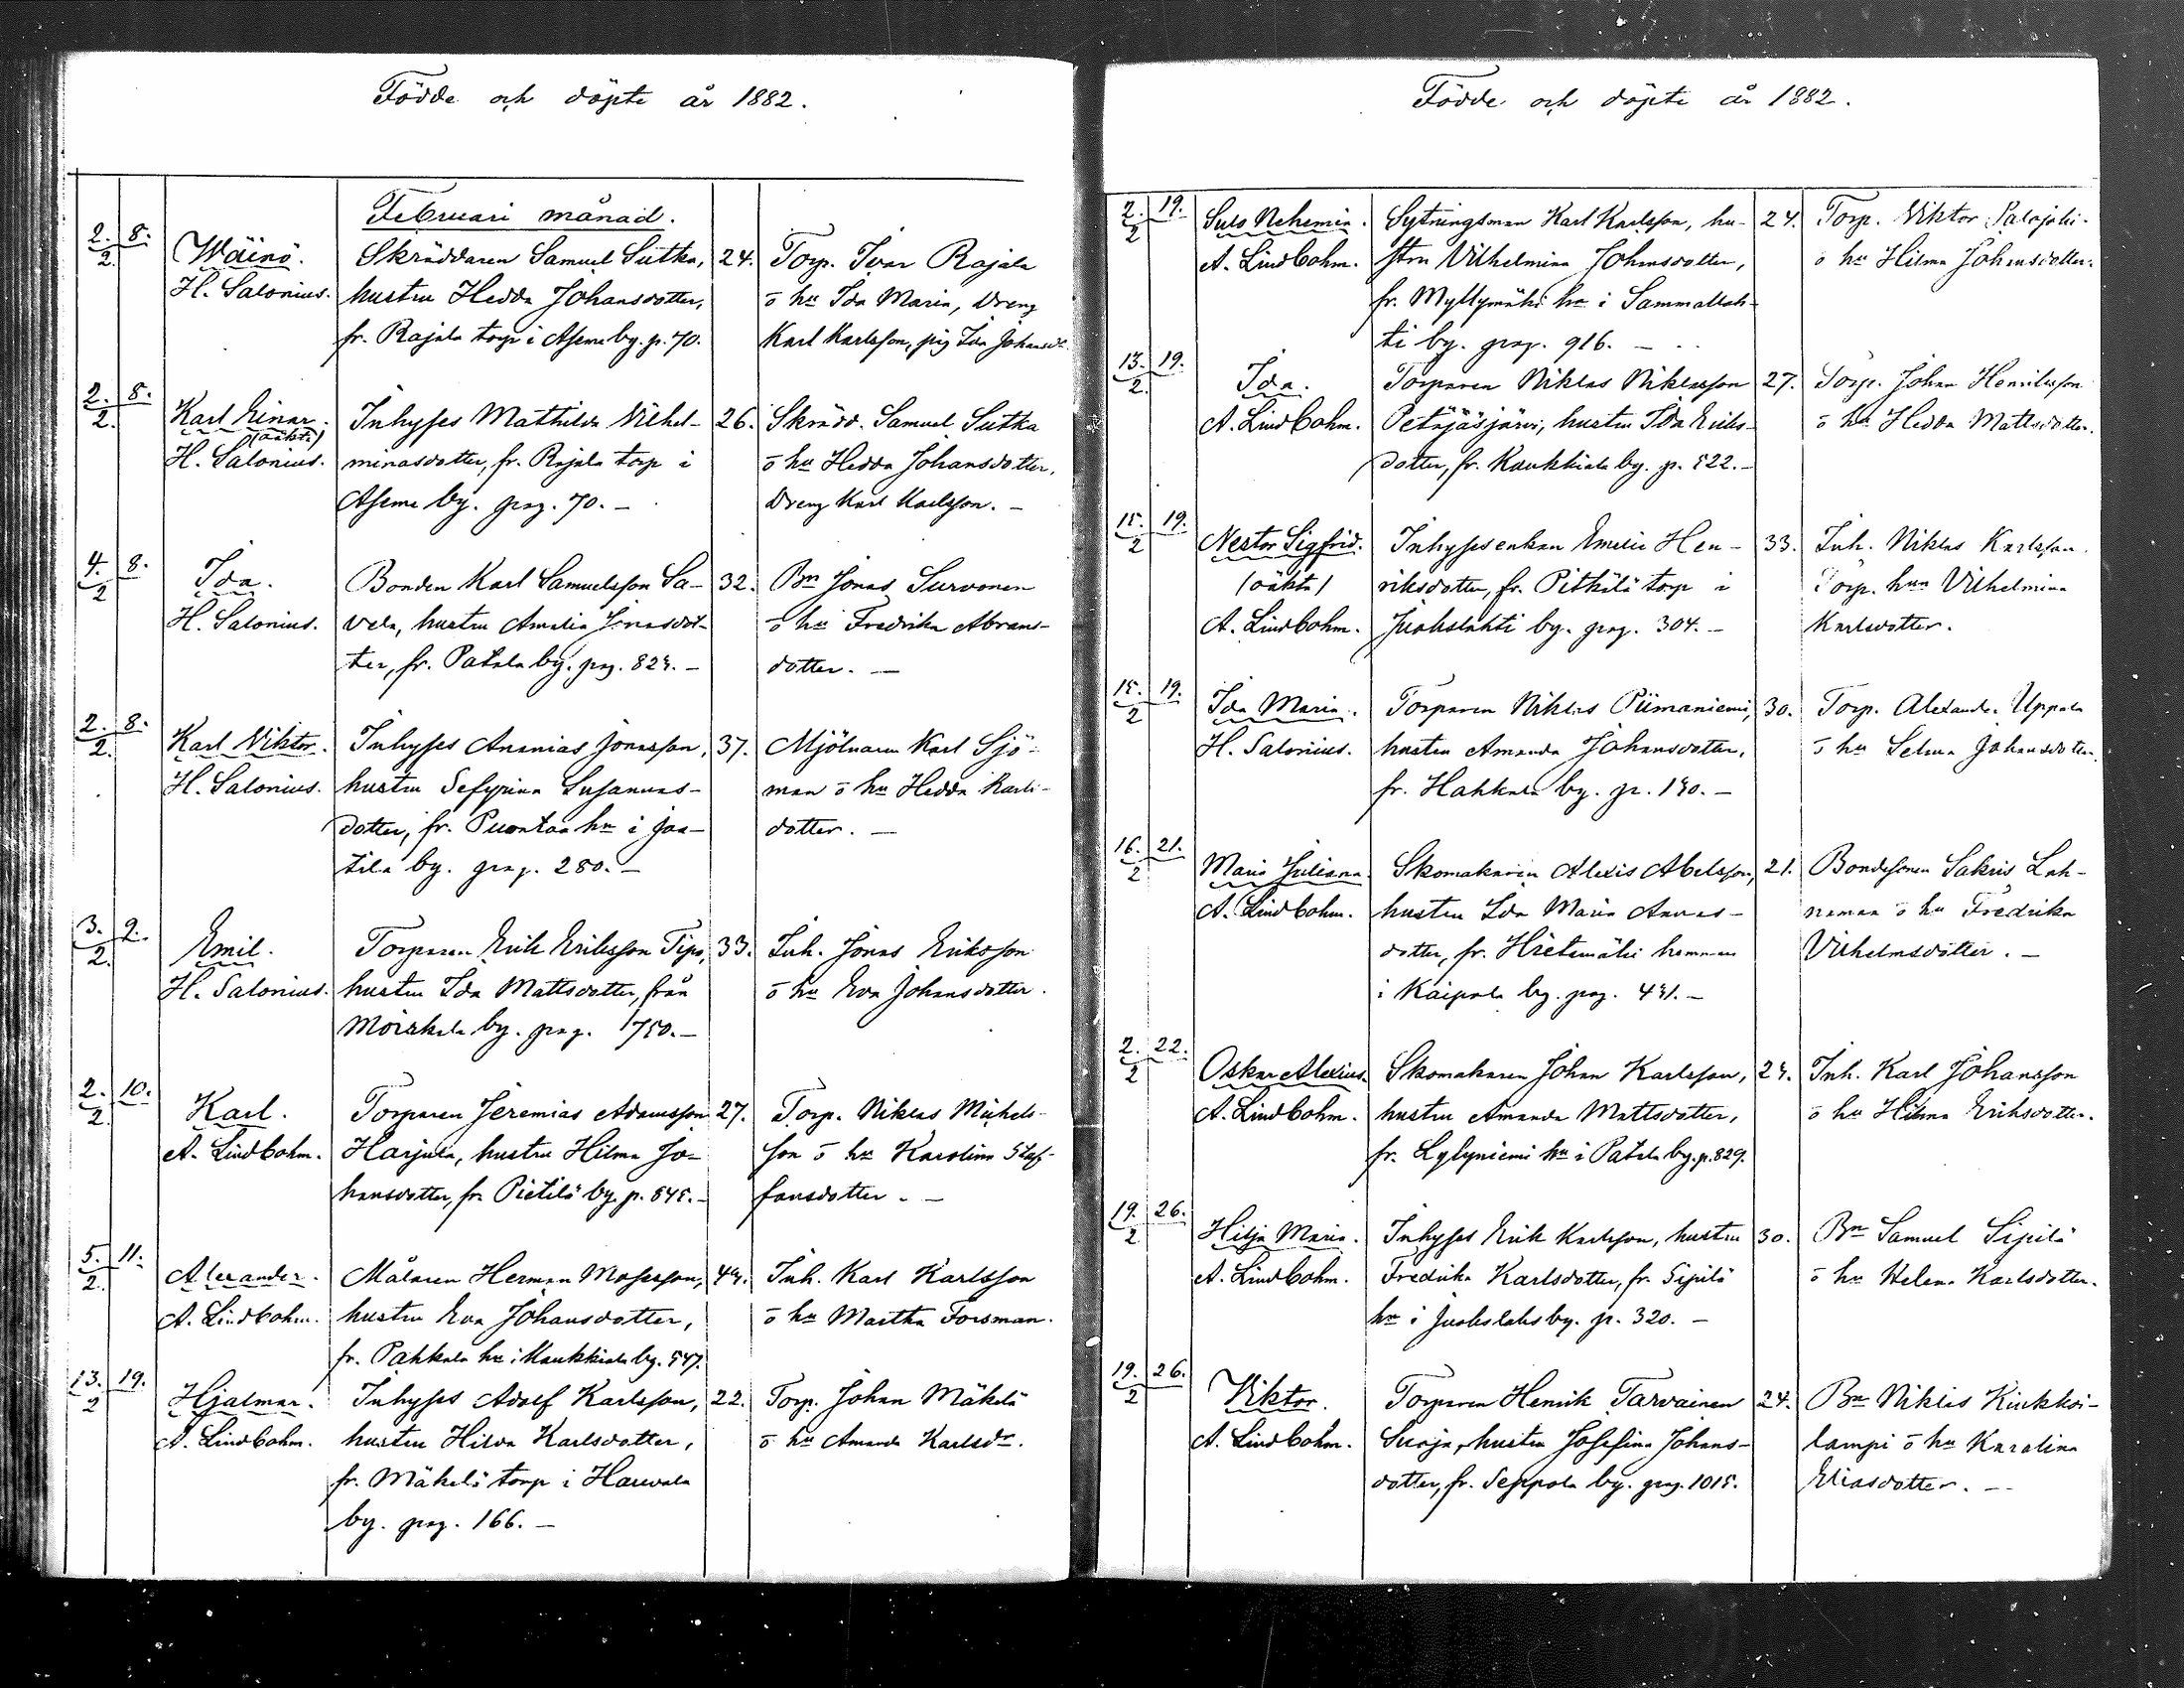 Födde och döpte år 1882.
Februari månad.
2. 8.
2.
Wäinö.
H. Salonius.
Skräddaren Samuel Sutka,
hustru Hedda Johansdotter,
fr. Rajala torp i Assme by. p. 70.
24.
Torp. Ivar Rajala
o hu Ida Maria, Dreng
Karl Karlsson, pig Ida Johansdr
2. 8.
2.
Karl Einar.
(oäkta)
H. Salonius.
Inhyses Mathilda Vilhel-
minasdotter, fr. Rajala torp i
Assme by. pag. 70. –
26.
Skrädd. Samuel Sutka
o hu Hedda Johansdotter,
Dreng Karl Karlsson. –
4. 8.
2
Ida.
H. Salonius.
Bonden Karl Samuelsson Sa-
vela, hustru Amalia Jonasdot-
ter, fr. Patala by. pag. 824. –
32.
Bn Jonas Survonen
o hu Fredrika Abrams-
dotter. –
2. 8.
2.
Karl Viktor.
H. Salonius.
Inhyses Ananias Jonasson,
hustru Sefyrina Susannas-
dotter, fr. Puontaa hn i Jaa-
tila by. pag. 280. –
37.
Mjölnaren Karl Sjö-
man o hu Hedda Karls-
dotter. –
3. 9.
2.
Emil.
H. Salonius.
Torparen Erik Eriksson Tips,
hustru Ida Mattsdotter, från
Moiskala by. pag. 750. –
33.
Inh. Jonas Eriksson
o hu Eva Johansdotter.
2. 10.
2.
Karl.
A. Lindbohm.
Torparen Jeremias Adamsson
Harjula, hustru Hilma Jo-
hansdotter, fr. Pietilä by. p. 845. –
27.
Torp. Niklas Mickels-
son o hu Karolina Staf-
fansdotter. –
5. 11.
2.
Alexander.
A. Lindbohm.
Målaren Herman Mosesson,
hustru Eva Johansdotter,
fr. Pahkala hn i Kaukkiala by. 547.
44.
Inh. Karl Karlsson
o hu Martha Forsman.
13. 19.
2
Hjalmar.
A. Lindbohm.
Inhyses Adolf Karlsson,
hustru Hilda Karlsdotter,
fr. Mäkelä torp i Harvala
by. pag. 166. –
22.
Torp. Johan Mäkelä
o hu Amanda Karlsdr.
Födde och döpte år 1882.
2. 19.
2
Sulo Nehemia.
A. Lindbohm.
Sytningsman Karl Karlsson, hu-
stru Vilhelmina Johansdotter,
fr. Myllymäki hn i Sammallah-
ti by. pag. 916. –
24.
Torp. Viktor Palojoki
o hu Hilma Johansdotter.
13. 19.
2.
Ida.
A. Lindbohm.
Torparen Niklas Niklasson
Petäjäsjärvi, hustru Ida Eriks-
dotter, fr. Kaukkiala by. p. 522. –
27.
Torp. Johan Henriksson
o hu Hedda Mattsdotter.
15. 19.
2
Nestor Sigfrid.
(oäkta)
A. Lindbohm.
Inhysesenkan Emelie Hen-
riksdotter, fr. Pitkälä torp i
Juokslahti by. pag. 304. –
33.
Inh. Niklas Karlsson.
Torp. hun Vilhelmina
Karlsdotter.
15. 19.
2
Ida Maria.
H. Salonius.
Torparen Niklas Piimäniemi,
hustru Amanda Johansdotter,
fr. Hakkala by. p. 140. –
30.
Torp. Alexander Uppala
o hu Selma Johansdotter.
16. 21.
2
Maria Juliana
A. Lindbohm.
Skomakaren Alexis Abelsson,
hustru Ida Maria Annas-
dotter, fr. Hietamäki hemman
i Kaipola by. pag. 431. –
21.
Bondesonen Sakris Lah-
naman o hu Fredrika
Vilhelmsdotter. –
2. 22.
2
Oskar Alexius.
A. Lindbohm.
Skomakaren Johan Karlsson,
hustru Amanda Mattsdotter,
fr. Lylyniemi hn i Patala by. p. 829.
24.
Inh. Karl Johansson
o hu Hilma Eriksdotter.
19. 26.
2
Hilja Maria.
A. Lindbohm.
Inhyses Erik Karlsson, hustru
Fredrika Karlsdotter, fr. Sipilä
hn i Juokslaks by. p. 320. –
30.
Bn Samuel Sipilä
o hu Helena Karlsdotter.
19. 26.
2
Viktor.
A. Lindbohm.
Torparen Henrik Tarvainen
Suoja, hustru Josefina Johans-
dotter, fr. Seppola by. pag. 1015.
24.
Bn Niklas Kirkkoi-
lampi o hu Karolina
Eliasdotter. –